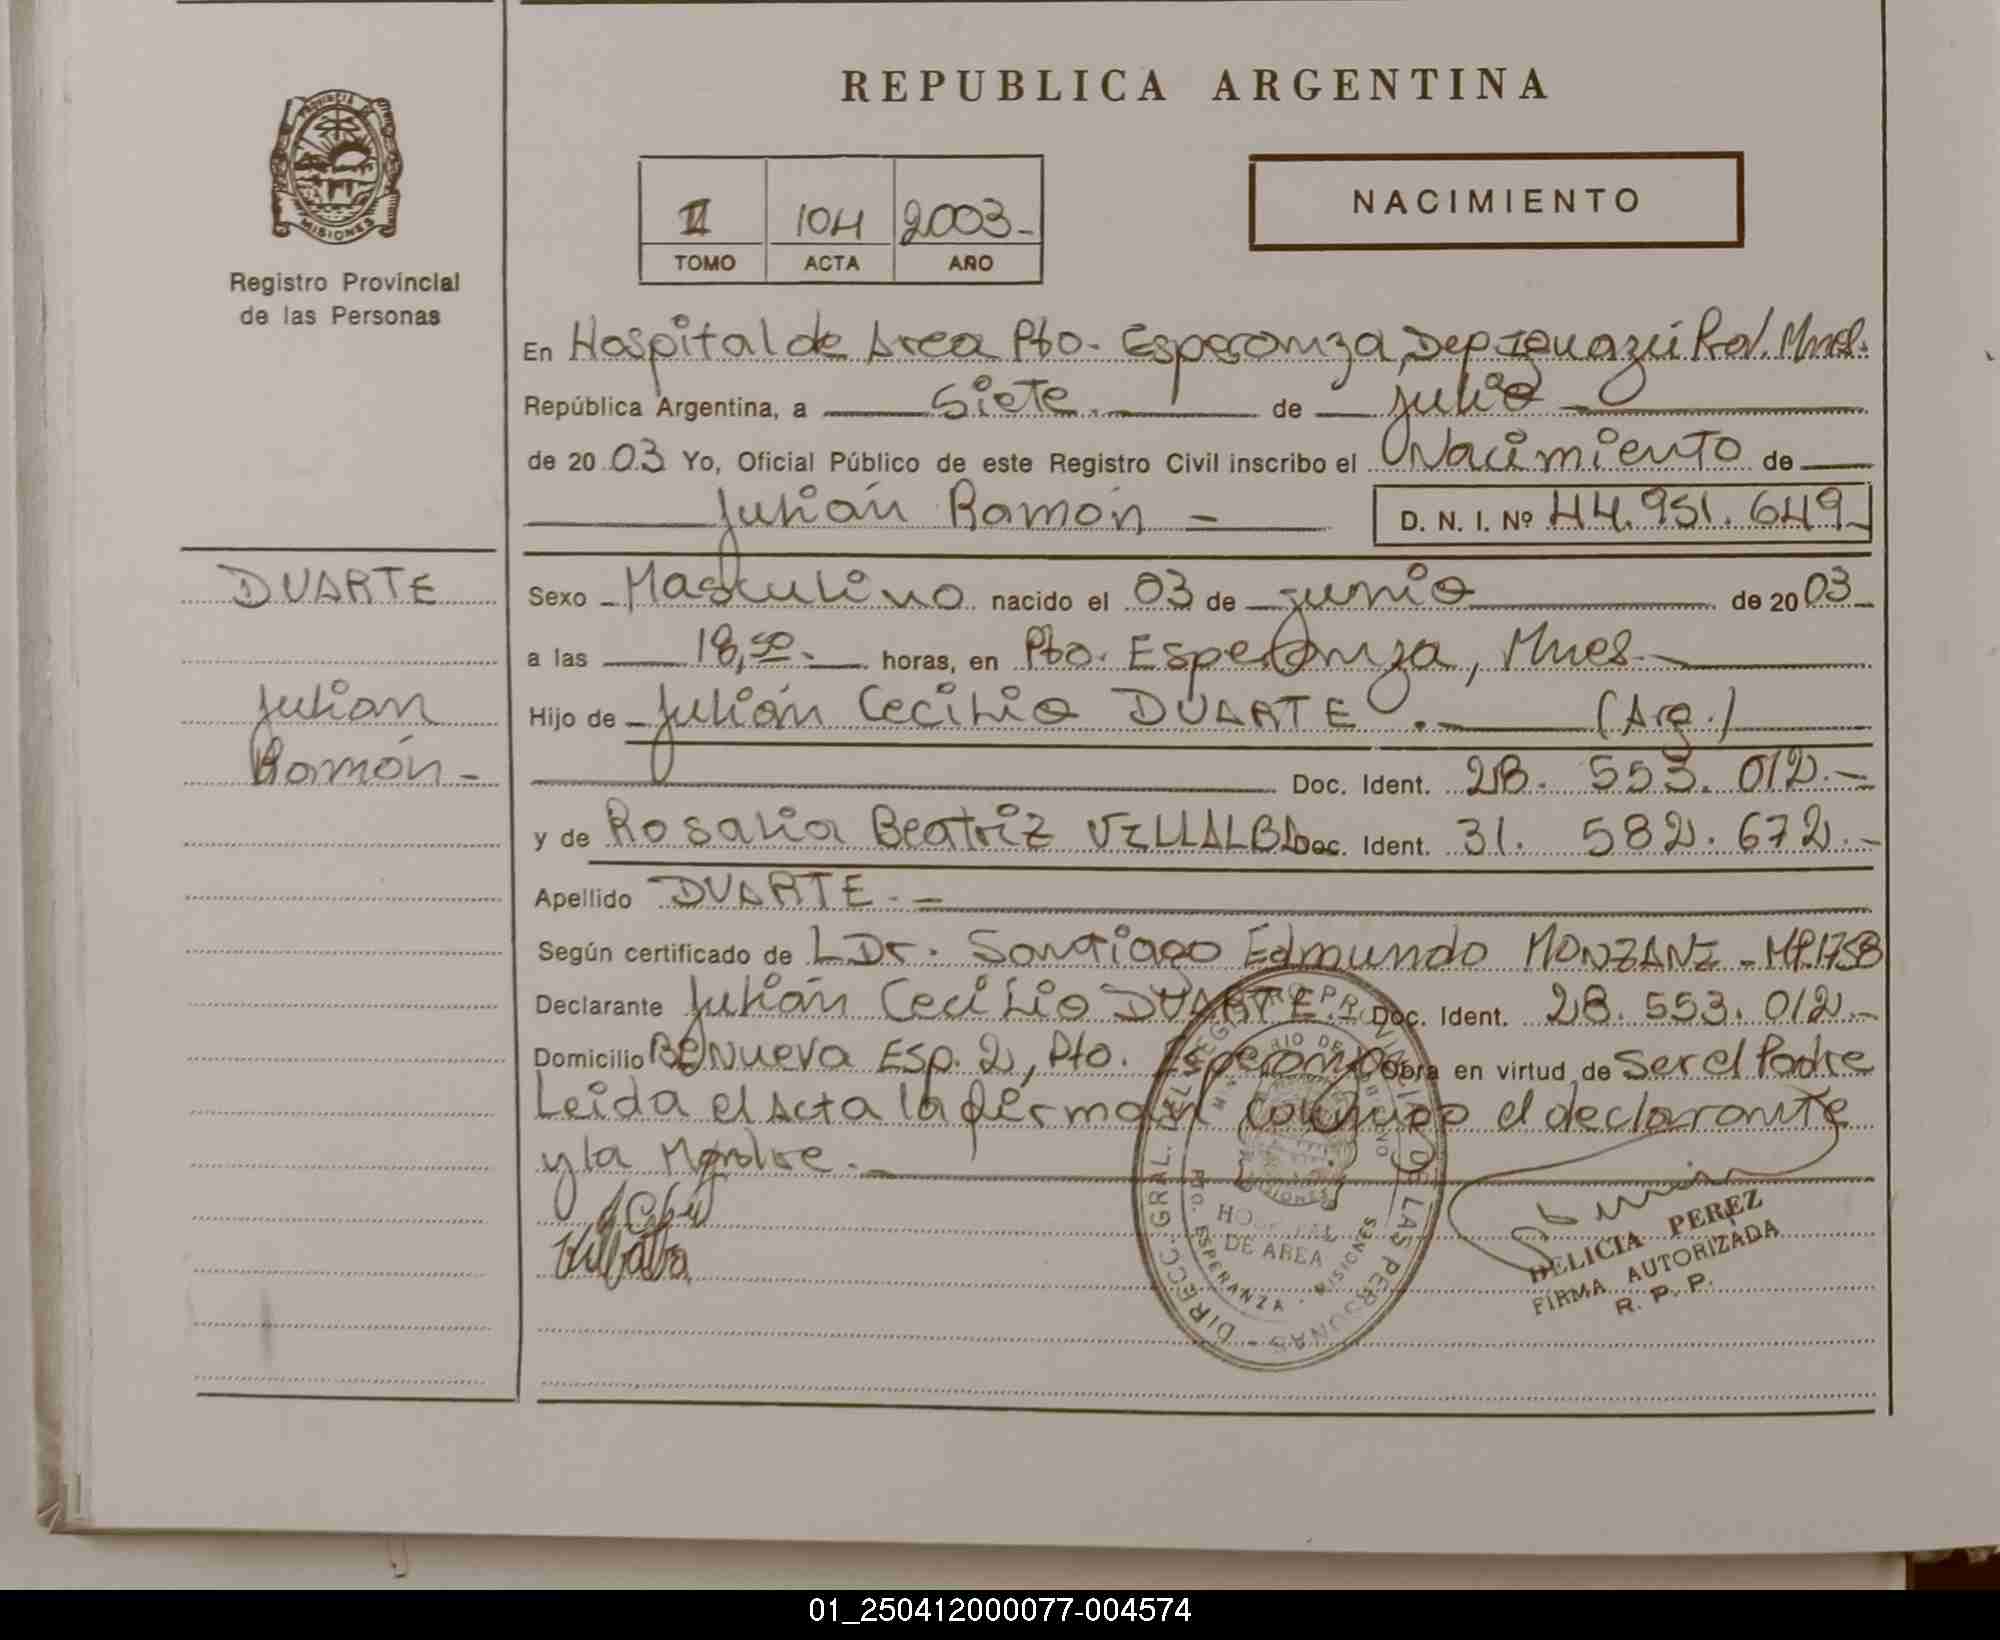 REPUBLICA ARGENTINA
PROVINCIA DE
MISIONES
Registro Provincial
de las Personas
II 104 2003-
TOMO ACTA AÑO
NACIMIENTO
En Hospital de Area Pto. Esperanza, Dep Iguazú Mnes.
República Argentina, a Siete de julio
de 2003 Yo, Oficial Público de este Registro Civil inscribo el Nacimiento de
Julián Ramón - D. N. I. Nº 44.951.649-
DUARTE
Julian
Ramón-
Sexo Masculino nacido el 03 de junio de 2003
a las 18,50. horas, en Pto. Esperanza, Mnes.
Hijo de Julián Cecilio DUARTE . (Arg.)
Doc. Ident. 28. 553. 012.-
y de Rosalia Beatriz VILLALBA Doc. Ident. 31. 582. 672.-
Apellido DUARTE.-
Según certificado de Dr. Santiago Edmundo MONZANI - MP.1758
Declarante Julián Cecilio DUARTE.- Doc. Ident. 28. 553. 012.-
Domicilio Bº Nueva Esp. 2, Pto. Esperanza Obra en virtud de Ser el Padre
Leida el Acta la firman conmigo el declarante
y la Madre.-
Villalba
DIRECC. GRAL. DEL REGISTRO PROVINCIAL DE LAS PERSONAS
HOSPITAL
DE AREA
PTO. ESPERANZA - MISIONES
DELICIA PEREZ
FIRMA AUTORIZADA
R. P. P.
01_250412000077-004574